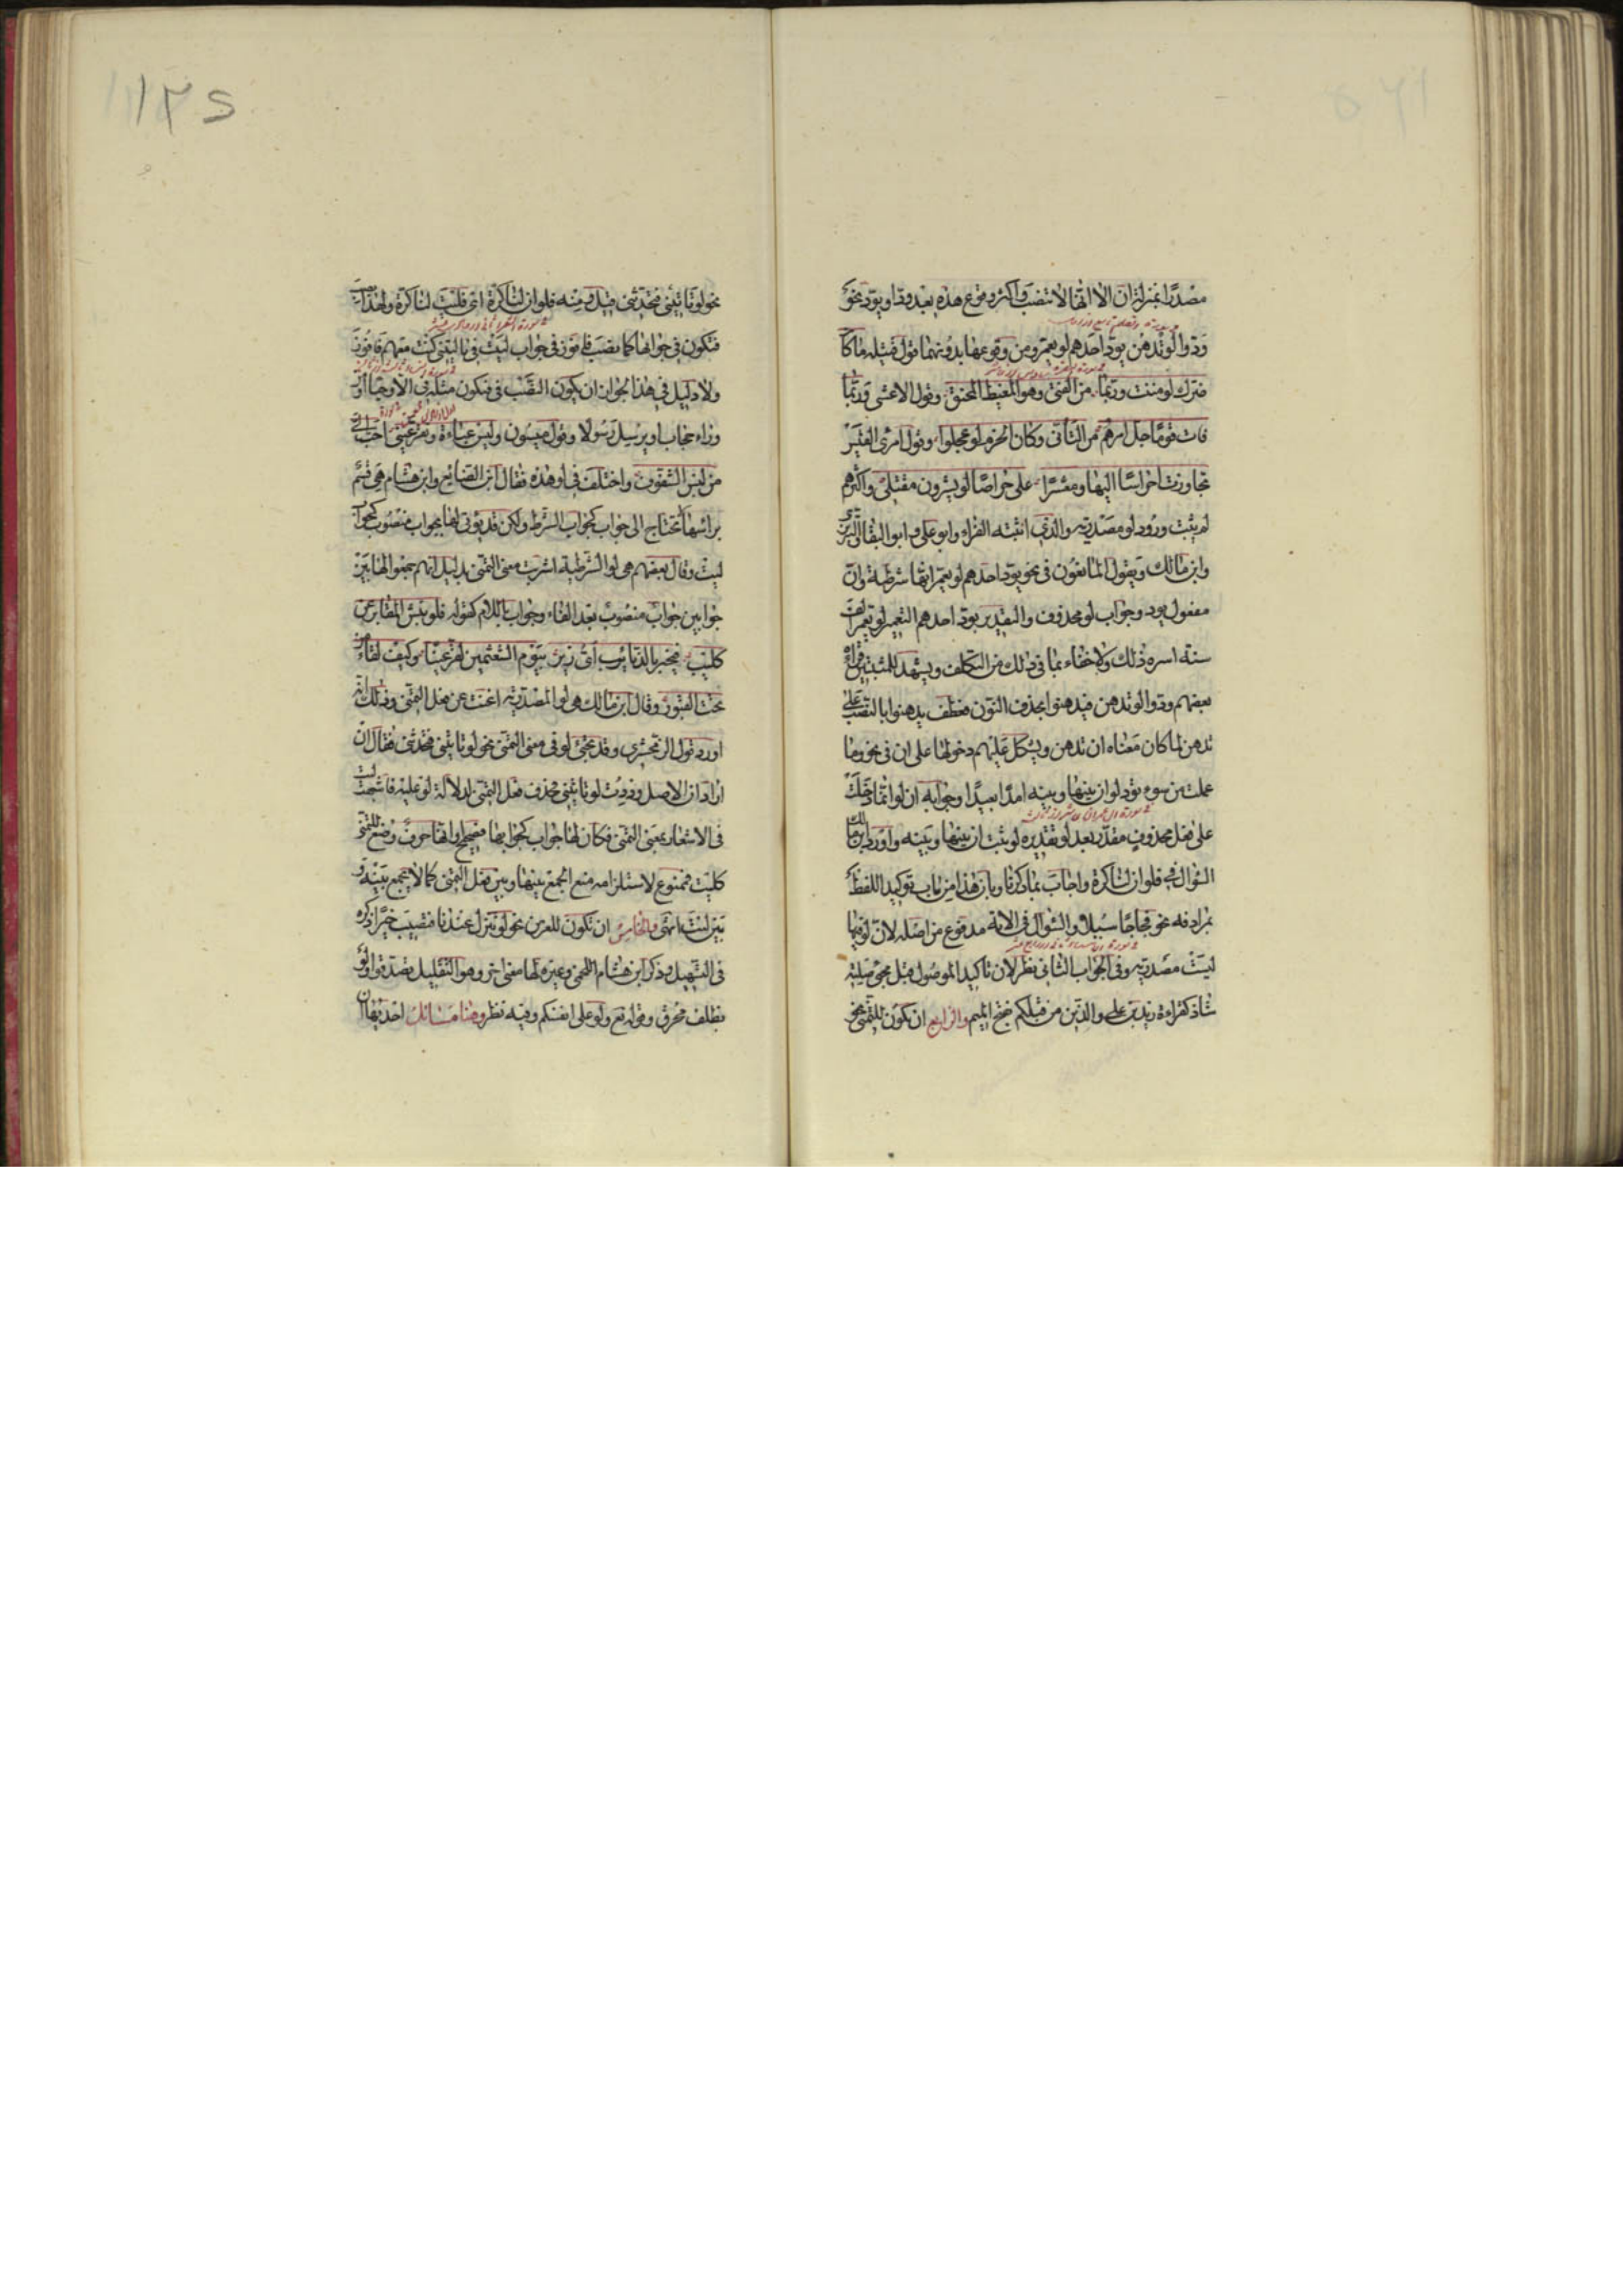 مصدرًا بمنزلة ان الا انها لا تنصب واكثر وقوع هذه بعد ود او يود نحو
ودوا لو تدهن يود احدهم لو يعمر ومن وقوعها بدونهما قول قتيلة ما كان
ضرك لو مننت وربما من الفتى وهو المغيظ المحنق وقول الاعشى وربما
فات قوما جل امرهم من التأنى وكان الحزم لو عجلوا وقول امرئ القيس
تجاوزت احراسًا اليها ومعشرًا على حراصًا لو يشرون مقتلى واكثرهم
لم يثبت ورود لو مصدرية والذى اثبته الفراء وابو على وابو البقا والتبريزى
وابن مالك ويقول المانعون فى نحو يود احدهم لو يعمر انها شرطية وان
مفعول يود وجواب لو محذوف والتقدير يود احدهم التعمير لو يعمر الف
سنة لسره ذلك ولا خفاء بما فى ذلك من التكلف ويشهد للمثبتين قراءة
بعضهم ودوا لو تدهن فيدهنوا بحذف النون فعطف يدهنوا بالنصب على
تدهن لما كان معناه ان تدهن ويشكل عليهم دخولها على ان فى نحو وما
عملت من سوء تود لو ان بينها وبينه امدا بعيدًا وجوابه ان لو انما دخلت
على فعل محذوف مقدر بعد لو تقديره لو ثبت ان بينها وبينه واورد ابن مالك
السؤال فى فلو ان لنا كرة واجاب بما ذكرنا وبان هذا من باب توكيد اللفظ
بمرادفه نحو فجاجًا سبلا والسؤال فى الاية مدفوع من اصله لان لو فيها
ليست مصدرية وفى الجواب الثانى نظر لان تاكيد الموصول قبل مجئ صلته
شاذ كقراءة زيد بن على والذين من قبلكم بفتح الميم والرابع ان تكون للتمنى نحو
نحو لو تاتينى فتحدثنى قيل ومنه فلو ان لنا كرة اى فليت لنا كرة ولهذا نصب
فتكون فى جوابها كما نصب فافوز فى جواب ليت فى يا ليتنى كنت معهم فافوز
ولا دليل فى هذا لجواز ان يكون النصب فى فتكون مثله فى الا وحيا او
وراء حجاب او يرسل رسولا وقول ميسون ولبس عباءة وتقر عينى احب الى
من لبس الشفوف واختلف فى لو هذه فقال ابن الضايع وابن هشام هى قسم
براسها لا تحتاج الى جواب كجواب الشرط ولكن قد يؤتى لها بجواب منصوب كجواب
ليت وقال بعضهم هى لو الشرطية اشربت معنى التمنى بدليل انهم جمعوا لها بين
جوابين جواب منصوب بعد الفاء وجواب باللام كقوله فلو نبش المقابر عن
كليب فيخبر بالذنائب اى زير بيوم الشعثمين لقر عينا وكيف لقاء من
تحت القبور وقال ابن مالك هى لو المصدرية اغنت عن فعل التمنى وذلك انه
اورد قول الزمخشرى وقد تجئ لو فى معنى التمنى نحو لو تاتينى فتحدثنى فقال ان
اراد ان الاصل وددت لو تاتينى فحذف فعل التمنى لدلالة لو عليه فاشبهت ليت
فى الاشعار بمعنى التمنى فكان لها جواب كجوابها فصحيح او انها حرف وضع للتمنى
كليت فممنوع لاستلزامه منع الجمع بينها وبين فعل التمنى كما لا يجمع بينه و
بين ليت انتهى والخامس ان تكون للعرض نحو لو تنزل عندنا فتصيب خيرًا ذكره
فى التسهيل وذكر ابن هشام اللخمى وغيره لها معنى اخر وهو التقليل تصدقوا ولو
بظلف محرق وقوله تع ولو على انفسكم وفيه نظر وهنا مسائل احديها ان